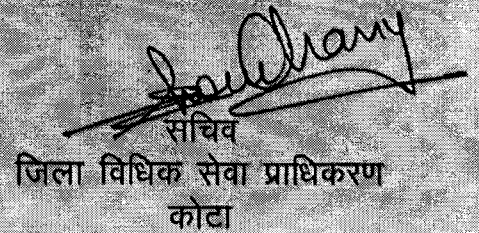 सचिव
जिला विधिक सेवा प्राधिकरण
कोटा